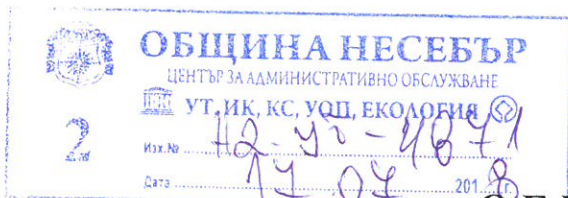 ОБЩИНА НЕСЕБЪР
ЦЕНТЪР ЗА АДМИНИСТРАТИВНО ОБСЛУЖВАНЕ
УТ, ИК, КС, УОП, ЕКОЛОГИЯ
2
Изх.№ Н2-УТ-4871
Дата 17.07 2018 г.